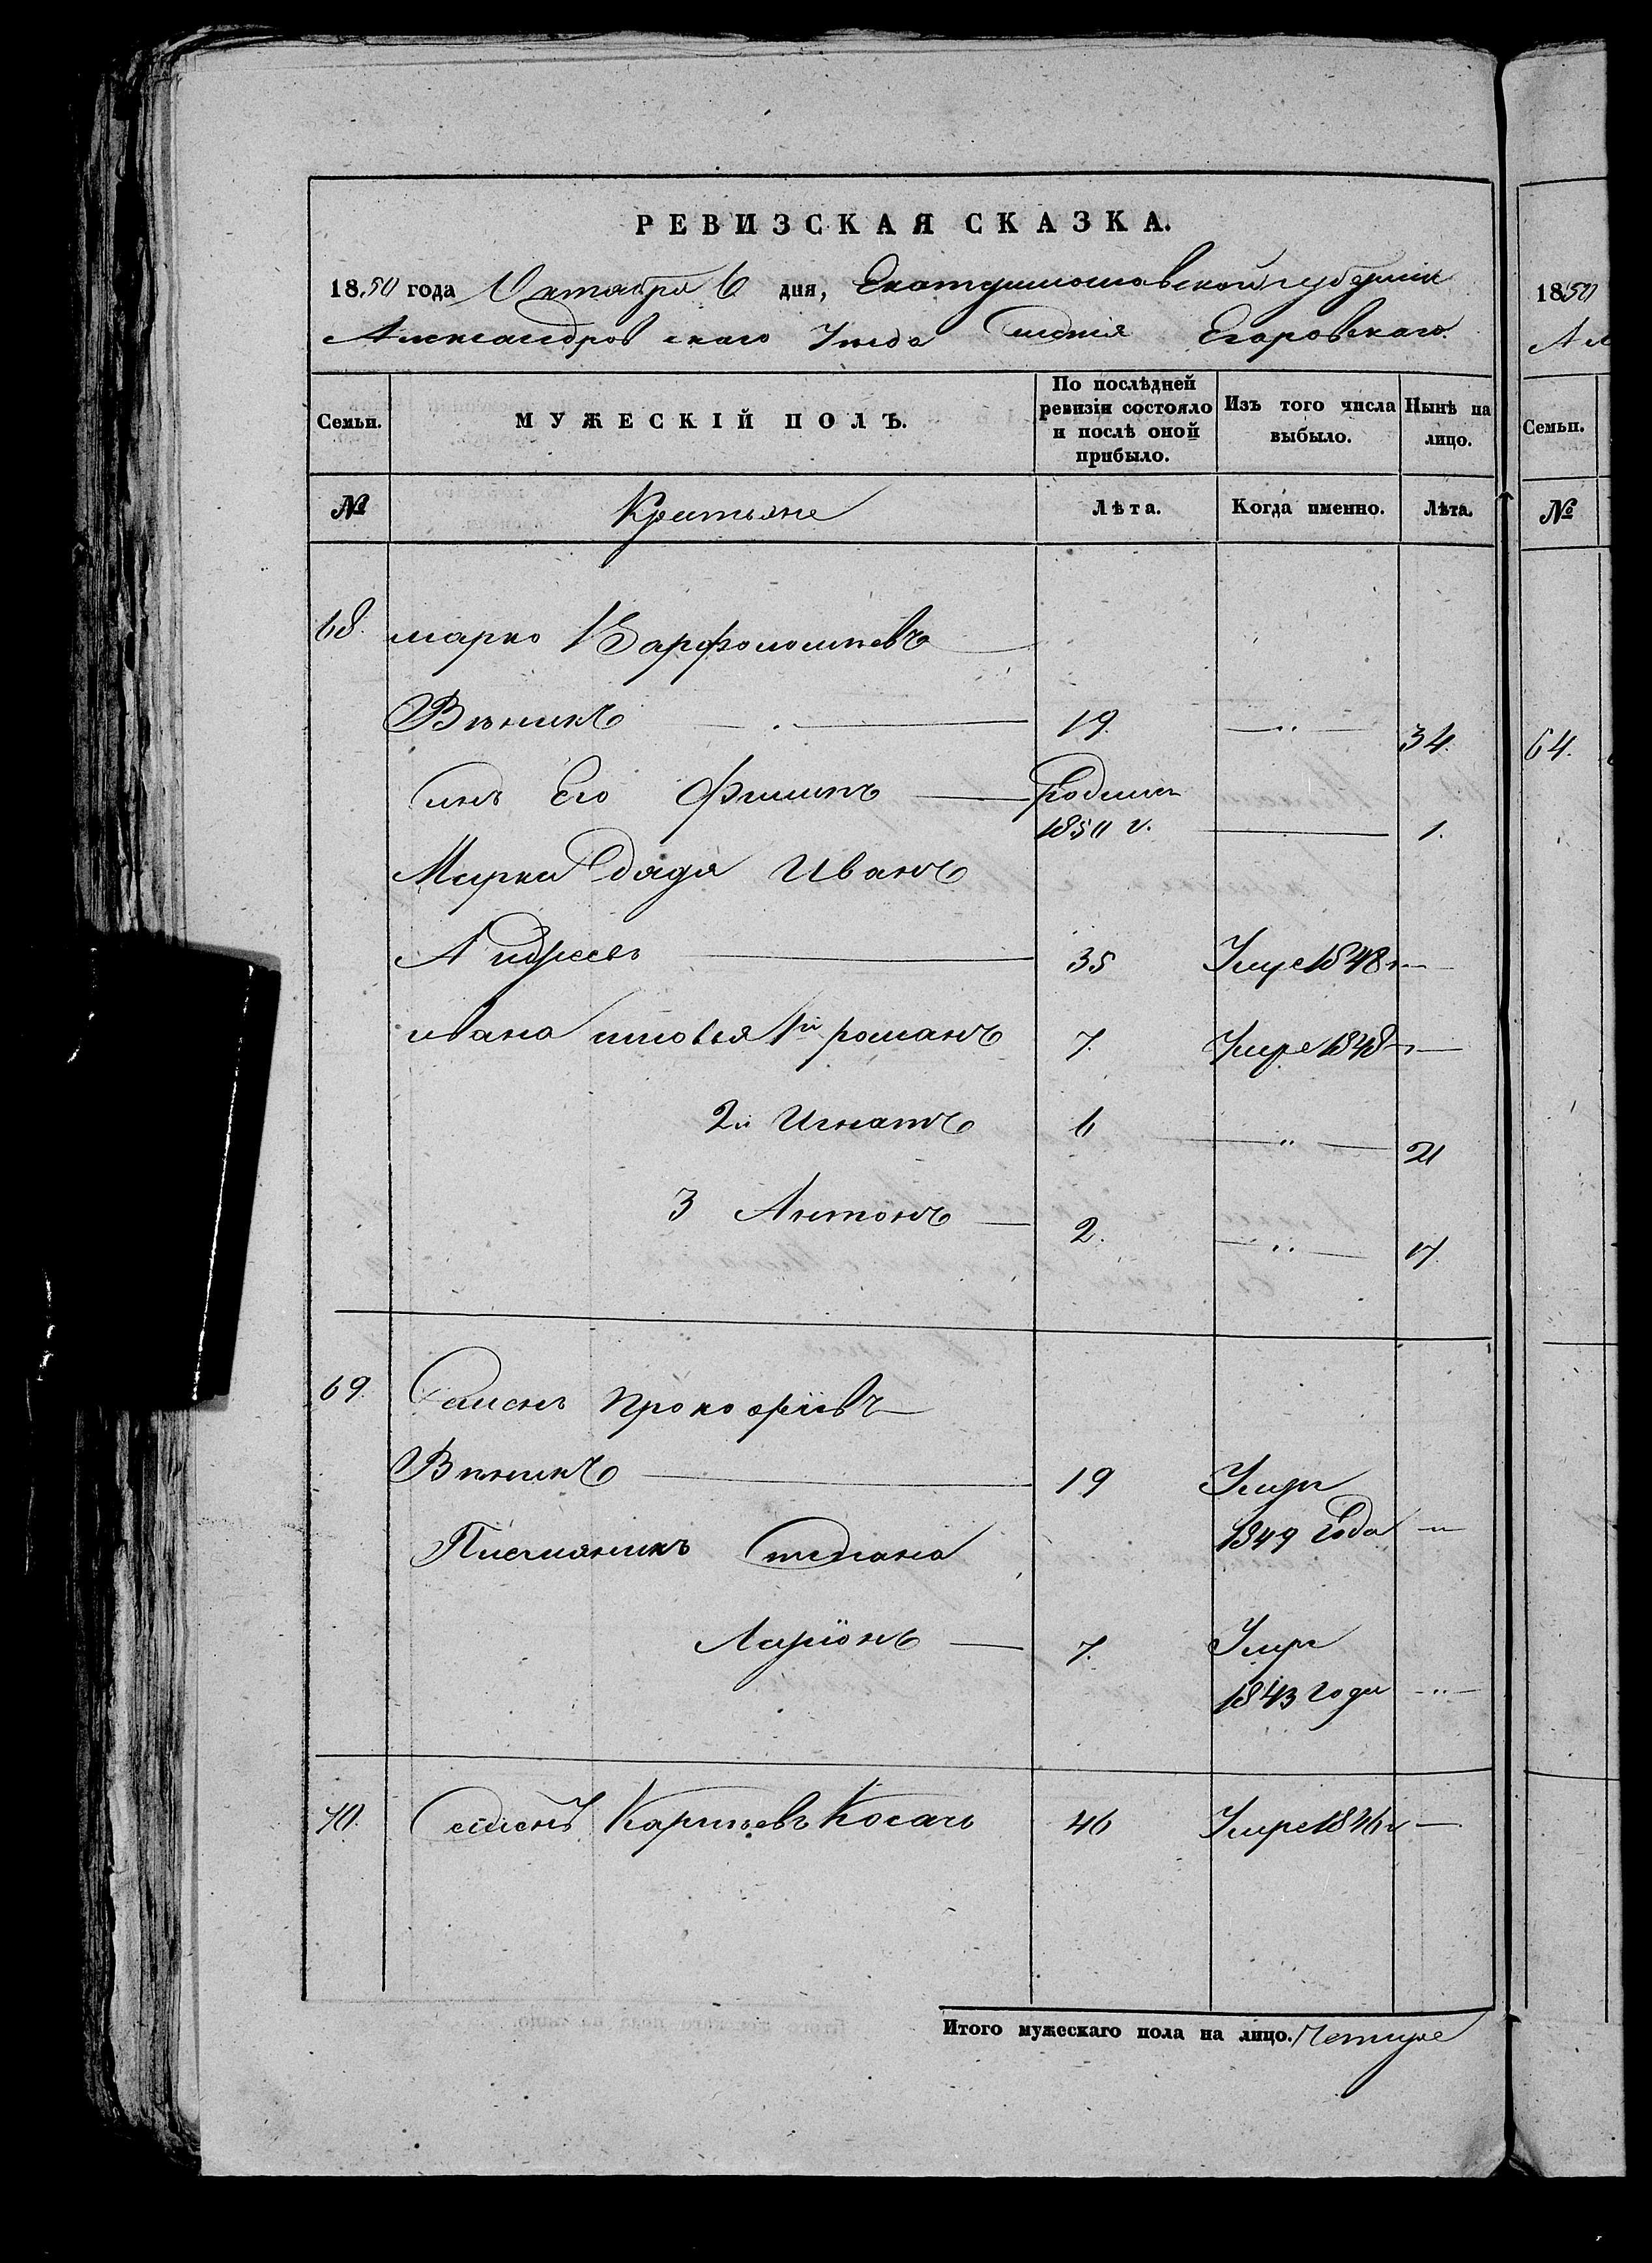 РЕВИЗСКАЯ СКАЗКА.
1850 года Октября 6 дня, Екатеринославской губернии
Александровскаго Уезда Имѣнія Егоровскаго.
Семьи. МУЖЕСКІЙ ПОЛЪ. По послѣдней ревизіи состояло и послѣ оной прибыло. Изъ того числа выбыло. Нынѣ на лицо.
№ Крестьяне Лѣта. Когда именно. Лѣта.
68. марко Варфоломѣевъ
Вѣникъ 19. 34.
сынъ Его Филипъ Родился
1850 г. 1.
Марка дядя Иванъ
Андреевъ 35 Умре 1848 г
ивана сыновья 1й романъ 7. Умре 1848 г
2й Игнатъ 6 21
3 Антонъ 2. 17
69. Семенъ Прокофіевъ
Вѣникъ 19 Умре
1849 Года
Племяникъ
Ларіонъ 7. Умре
1843 Года
70. Семенъ Карпѣевъ Косачь 46 Умре 1846 г
Итого мужескаго пола на лицо. Четыре
1850
Семьи.
№
64.